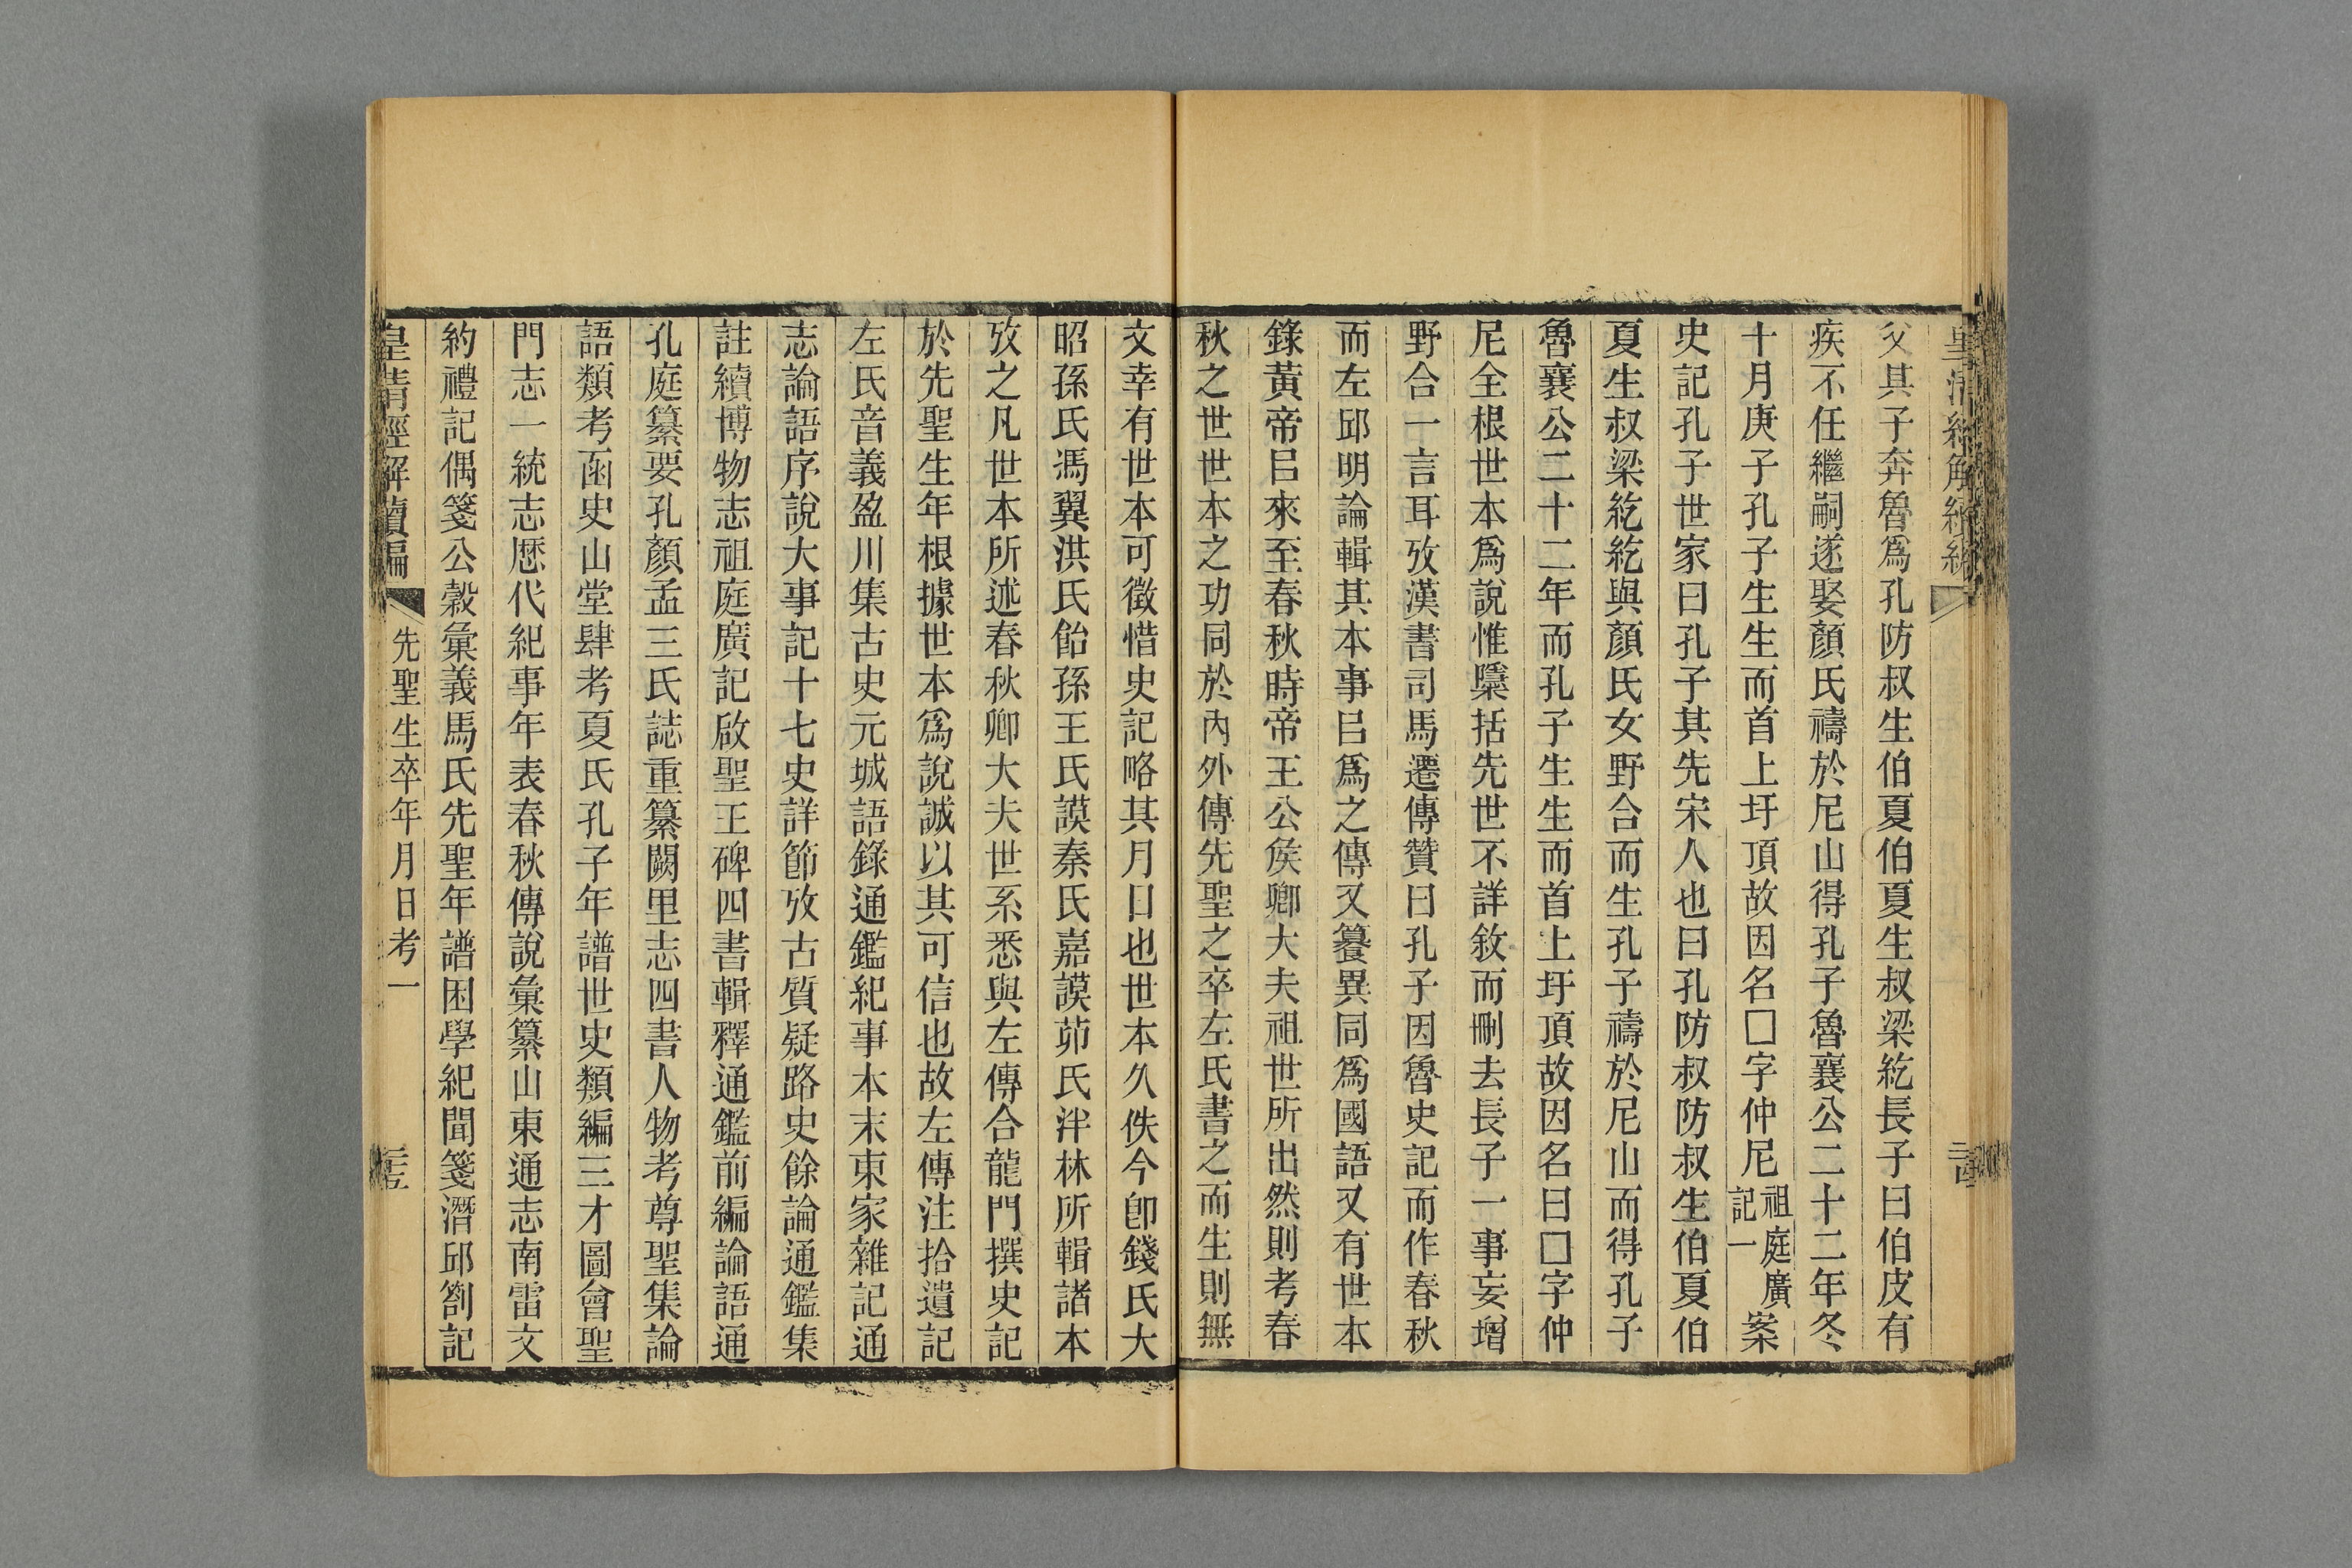 皇清經解續編
父其子奔魯爲孔防叔生伯夏伯夏生叔梁紇長子曰伯皮有
疾不任繼嗣遂娶顏氏禱於尼山得孔子魯襄公二十二年冬
十月庚子孔子生生而首上圩頂故因名□字仲尼祖庭廣記一案
史記孔子世家曰孔子其先宋人也曰孔防叔防叔生伯夏伯
夏生叔梁紇紇與顏氏女野合而生孔子禱於尼山而得孔子
魯襄公二十二年而孔子生生而首上圩頂故因名曰□字仲
尼全根世本爲說惟檃括先世不詳敘而刪去長子一事妄增
野合一言耳攷漢書司馬遷傳贊曰孔子因魯史記而作春秋
而左邱明論輯其本事㠯爲之傳又籑異同爲國語又有世本
錄黃帝㠯來至春秋時帝王公矦卿大夫祖世所出然則考春
秋之世世本之功同於內外傳先聖之卒左氏書之而生則無
文幸有世本可徵惜史記略其月日也世本久佚今卽錢氏大
昭孫氏馮翼洪氏飴孫王氏謨秦氏嘉謨茆氏泮林所輯諸本
攷之凡世本所述春秋卿大夫世系悉與左傳合龍門撰史記
於先聖生年根據世本爲說誠以其可信也故左傳注拾遺記
左氏音義盈川集古史元城語錄通鑑紀事本末東家雜記通
志論語序說大事記十七史詳節攷古質疑路史餘論通鑑集
註續博物志祖庭廣記啟聖王碑四書輯釋通鑑前編論語通
孔庭纂要孔顏孟三氏誌重纂闕里志四書人物考尊聖集論
語類考函史山堂肆考夏氏孔子年譜世史類編三才圖會聖
門志一統志厯代紀事年表春秋傳說彙纂山東通志南雷文
約禮記偶箋公穀彙義馬氏先聖年譜困學紀聞箋潛邱劄記
皇清經解續編 先聖生卒年月日考一